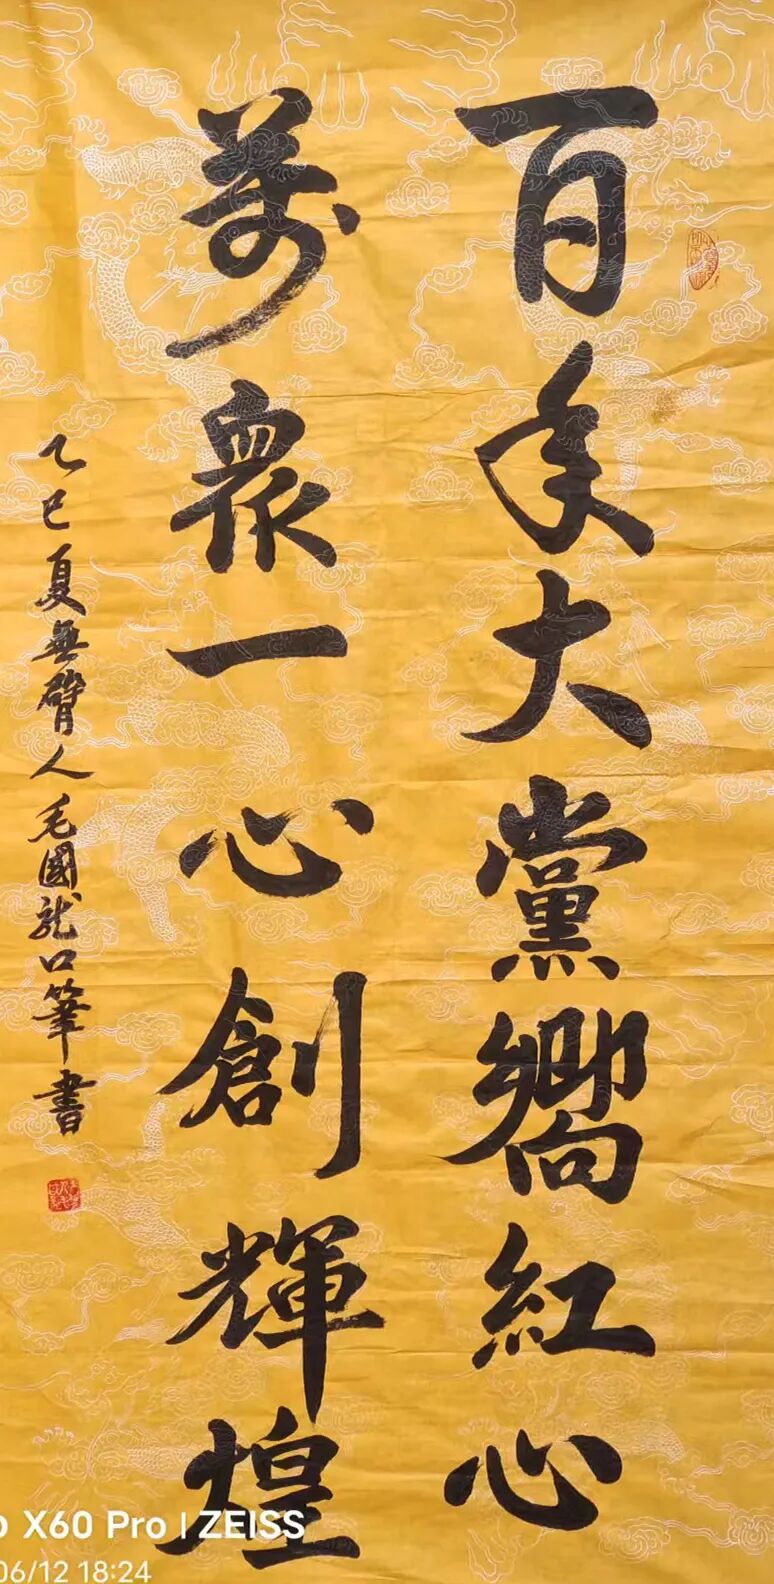 百年大黨嚮紅心
萬眾一心創輝煌
乙巳夏無臂人毛國龍口筆書
X60 Pro | ZEISS
06/12 18:24